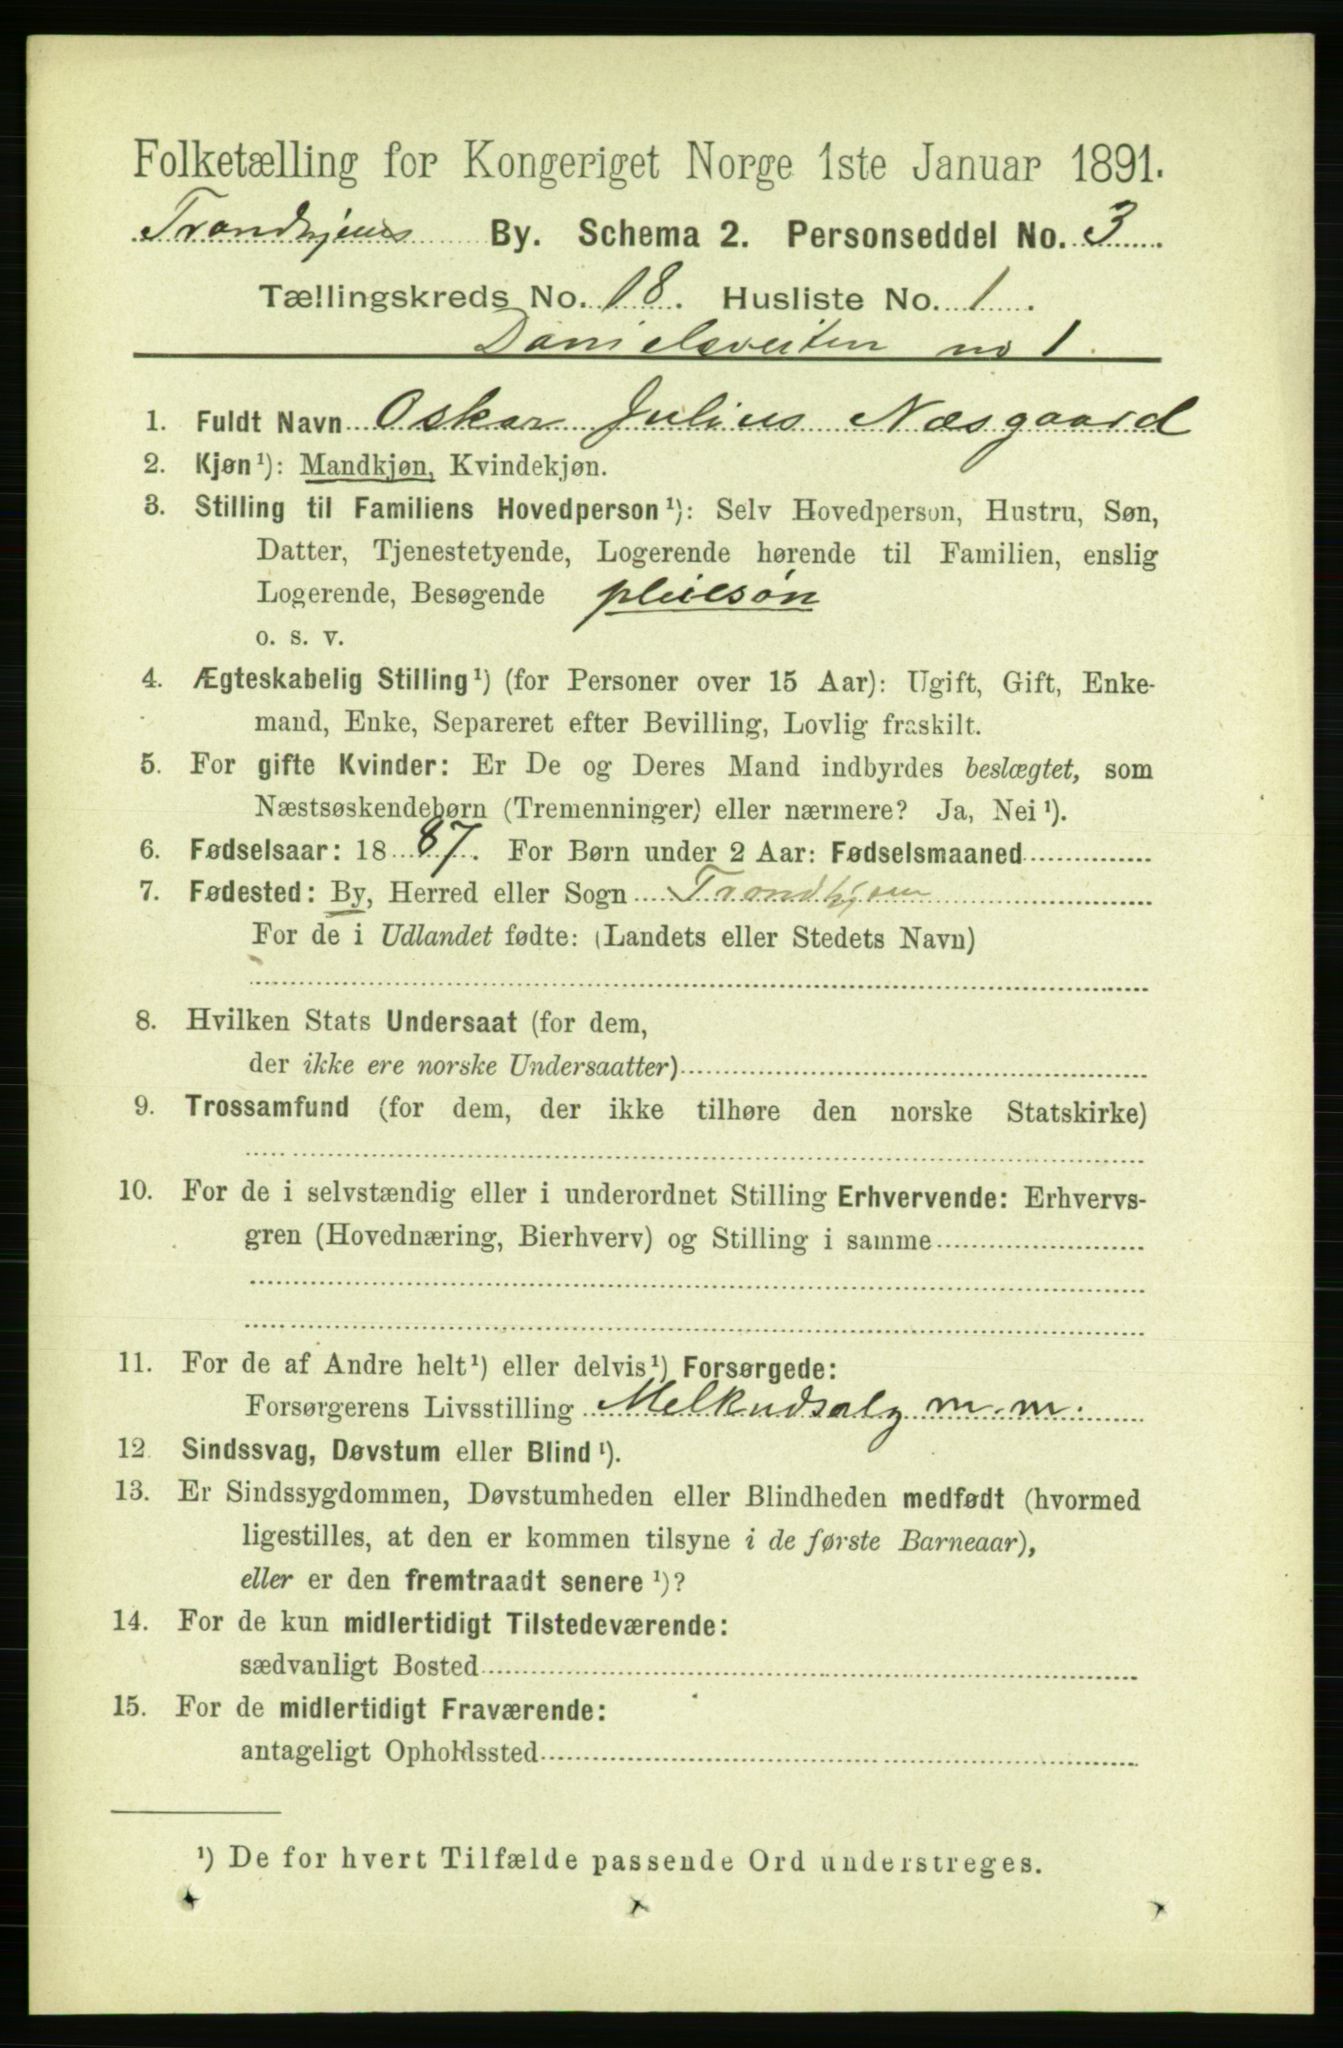 Folketælling for Kongeriget Norge 1ste Januar 1891.
Trondhjems By. Schema 2. Personseddel No. 3
Tællingskreds No. 18. Husliste No. 1
Danielsveiten no 1.
1. Fuldt Navn Oskar Julius Næsgaard
2. Kjøn¹): Mandkjøn, Kvindekjøn.
3. Stilling til Familiens Hovedperson¹): Selv Hovedperson, Hustru, Søn,
Datter, Tjenestetyende, Logerende hørende til Familien, enslig
Logerende, Besøgende pleiesøn
o. s. v.
4. Ægteskabelig Stilling¹) (for Personer over 15 Aar): Ugift, Gift, Enke-
mand, Enke, Separeret efter Bevilling, Lovlig fraskilt.
5. For gifte Kvinder: Er De og Deres Mand indbyrdes beslægtet, som
Næstsøskendebørn (Tremenninger) eller nærmere? Ja, Nei¹).
6. Fødselsaar: 1887. For Børn under 2 Aar: Fødselsmaaned
7. Fødested: By, Herred eller Sogn Trondhjem
For de i Udlandet fødte: (Landets eller Stedets Navn)
8. Hvilken Stats Undersaat (for dem,
der ikke ere norske Undersaatter)
9. Trossamfund (for dem, der ikke tilhøre den norske Statskirke)
10. For de i selvstændig eller i underordnet Stilling Erhvervende: Erhvervs-
gren (Hovednæring, Bierhverv) og Stilling i samme
11. For de af Andre helt¹) eller delvis¹) Forsørgede:
Forsørgerens Livsstilling Melkudsalg m.m.
12. Sindssvag, Døvstum eller Blind¹).
13. Er Sindssygdommen, Døvstumheden eller Blindheden medfødt (hvormed
ligestilles, at den er kommen tilsyne i de første Barneaar),
eller er den fremtraadt senere¹)?
14. For de kun midlertidigt Tilstedeværende:
sædvanligt Bosted
15. For de midlertidigt Fraværende:
antageligt Opholdssted
¹) De for hvert Tilfælde passende Ord understreges.